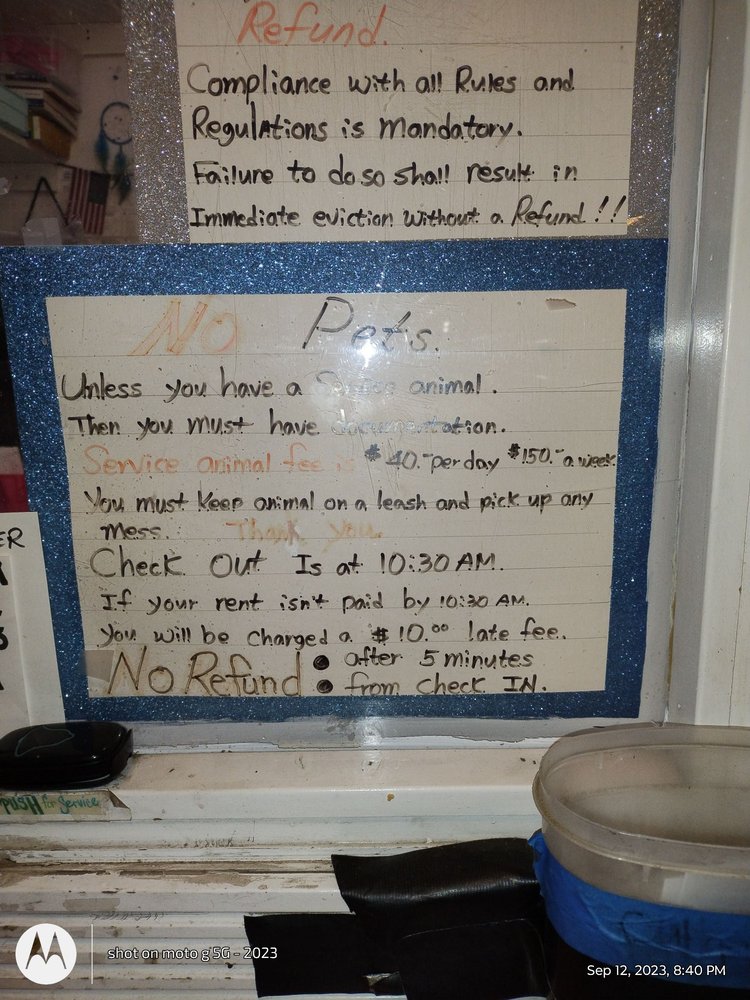 Refund.
Compliance with all Rules and
Regulations is mandatory.
Failure to do so shall result in
Immediate eviction without a Refund!!
No Pets.
Unless you have a Service animal.
Then you must have documentation.
Service animal fee is $40.- per day $150.- a week
You must keep animal on a leash and pick up any
mess. Thank you.
Check Out Is at 10:30 AM.
If your rent isn't paid by 10:30 AM.
You will be charged a $10.00 late fee.
No Refund • after 5 minutes
• from check IN.
ER
PUSH for Service
shot on moto g 5G - 2023
Sep 12, 2023, 8:40 PM